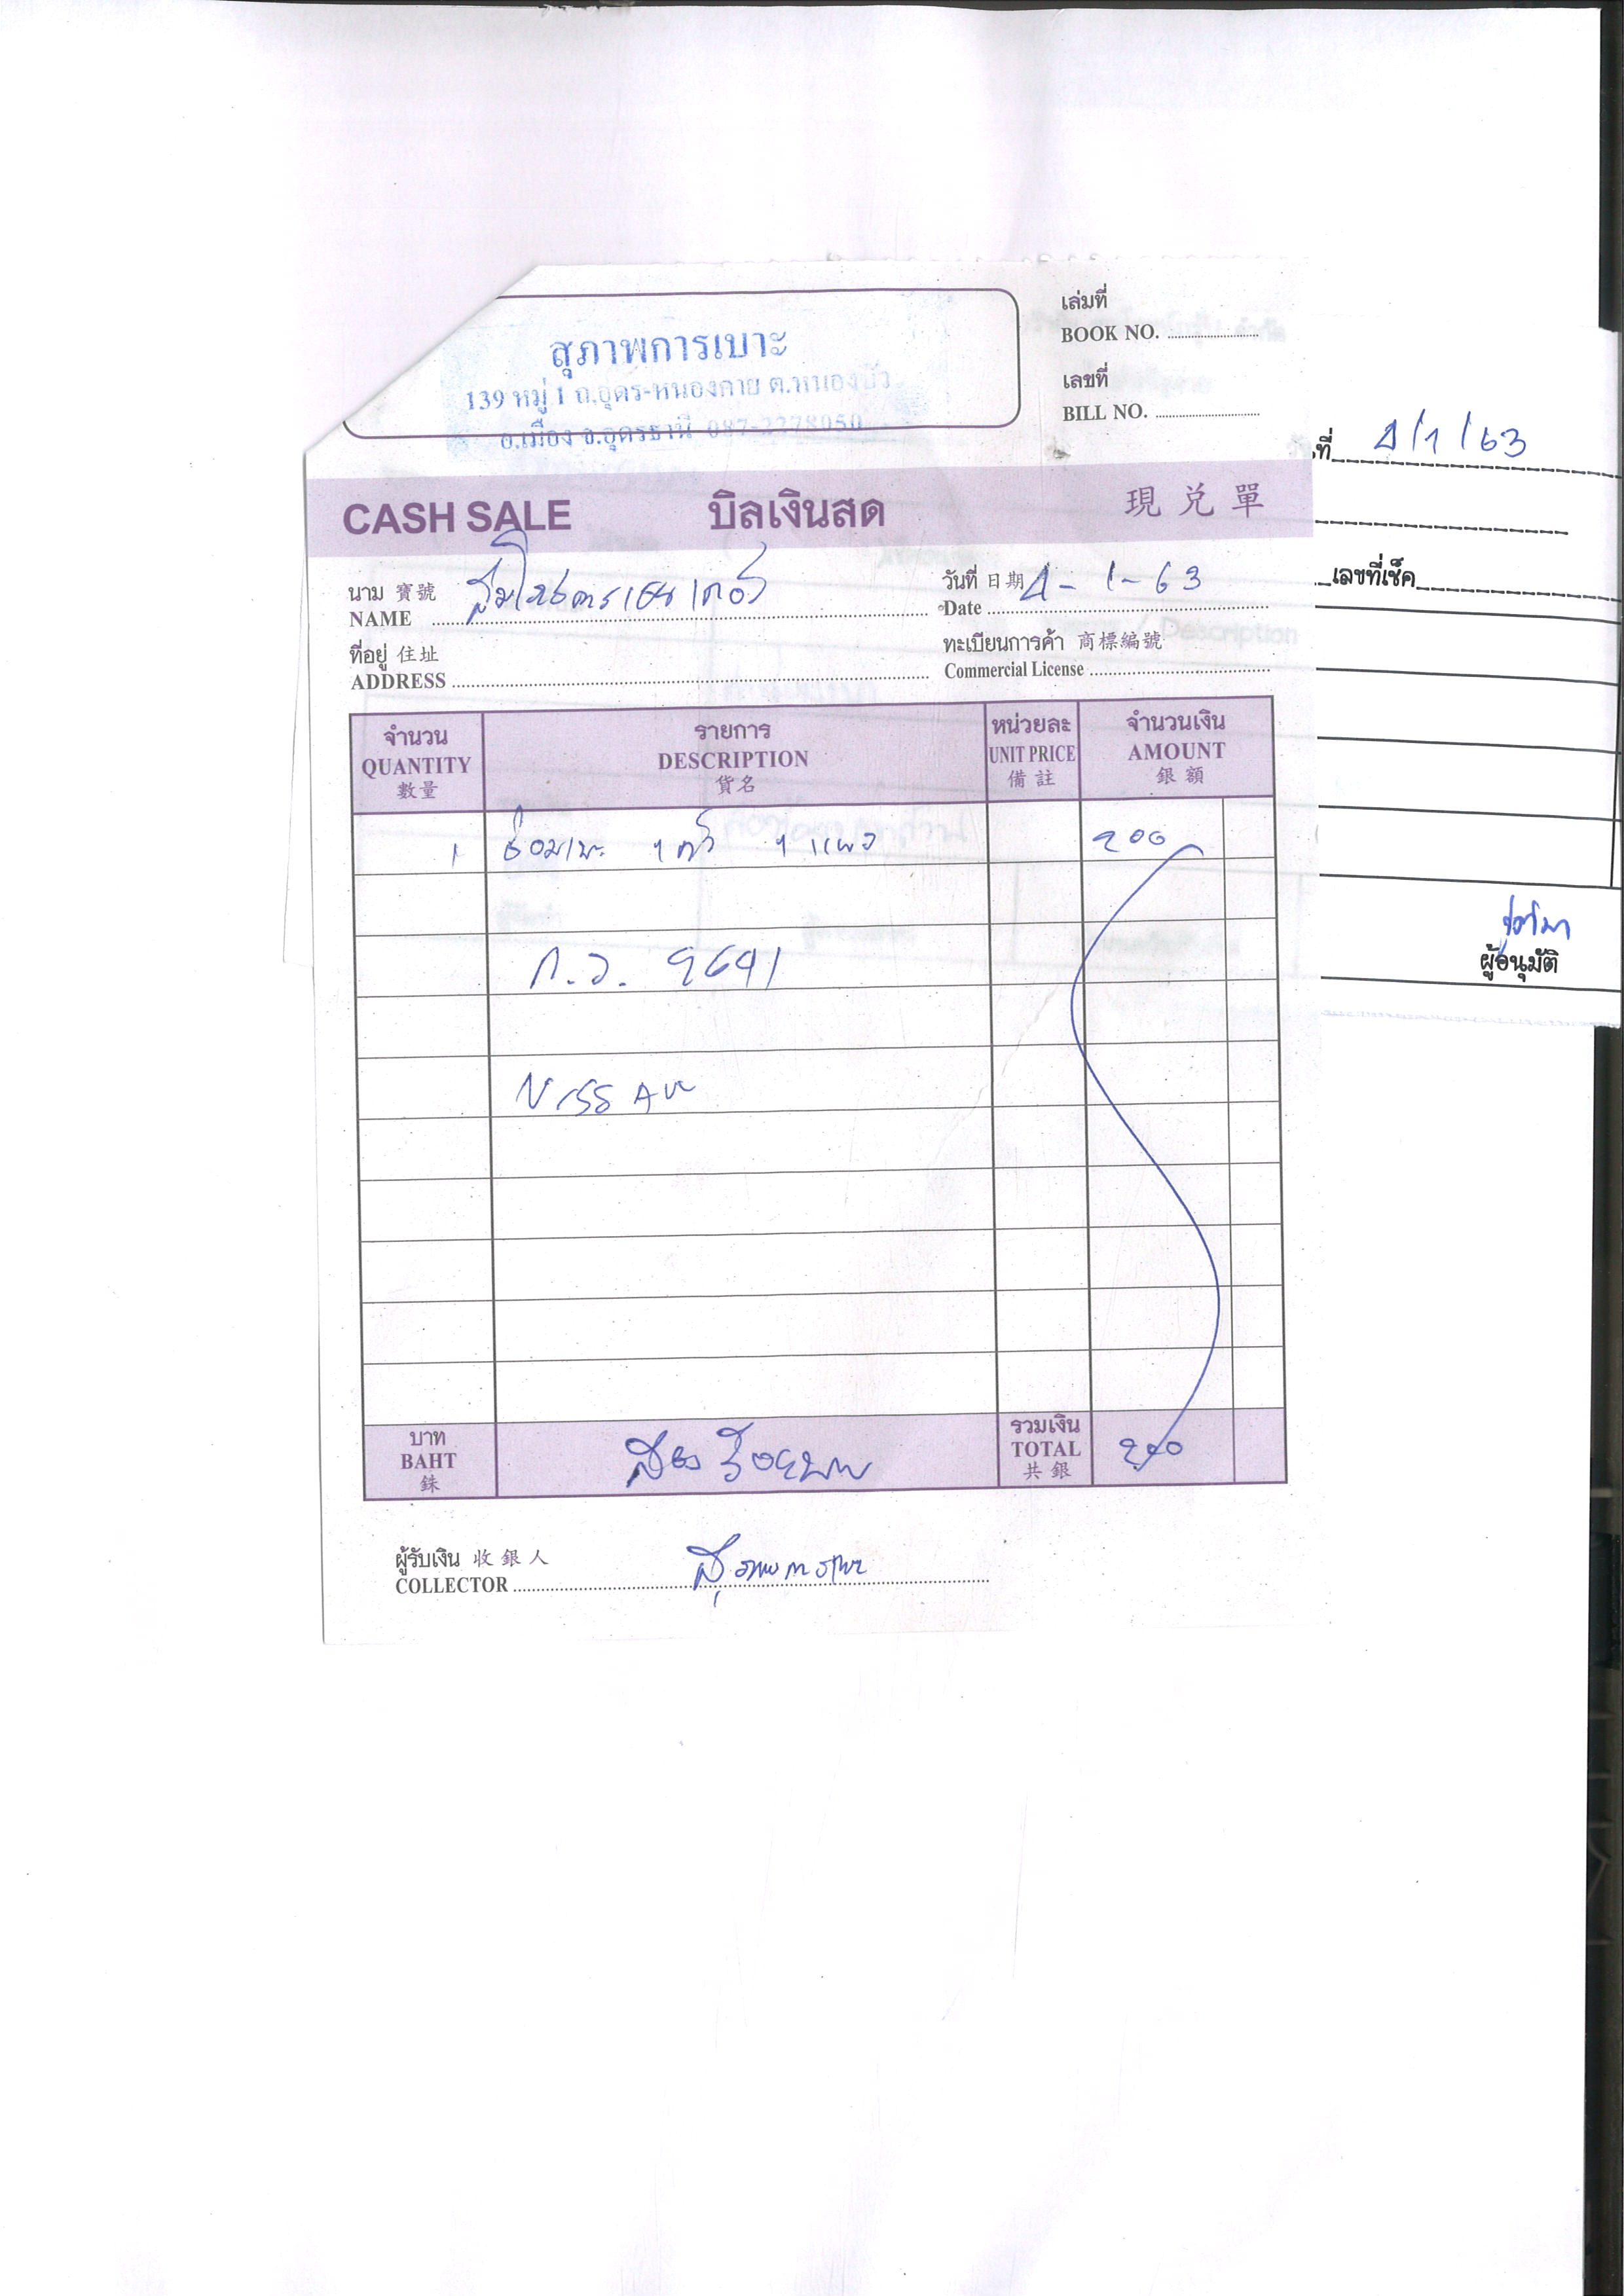 สุภาพการเบาะ
139 หมู่ 1 ถ.อุดร-หนองคาย ต.หนองบัว
อ.เมือง จ.อุดรธานี 087-2278050
เล่มที่
BOOK NO.
เลขที่
BILL NO.
ที่ 4/1/63
CASH SALE บิลเงินสด 現兌單
เลขที่เช็ค
นาม 寶號
NAME
วันที่ 日期 4-1-63
Date
ที่อยู่ 住址
ADDRESS
ทะเบียนการค้า 商標編號
Commercial License
จำนวน รายการ หน่วยละ จำนวนเงิน
QUANTITY DESCRIPTION UNIT PRICE AMOUNT
數量 貨名 備註 銀額
1 ซ่อมเบาะ 1 ตัว 1 แผง 200
ก.ว. 9641
NISSAN
ผู้อนุมัติ
บาท สองร้อยบาท รวมเงิน
BAHT TOTAL 200
銖 共銀
ผู้รับเงิน 收銀人
COLLECTOR สุภาพการเบาะ